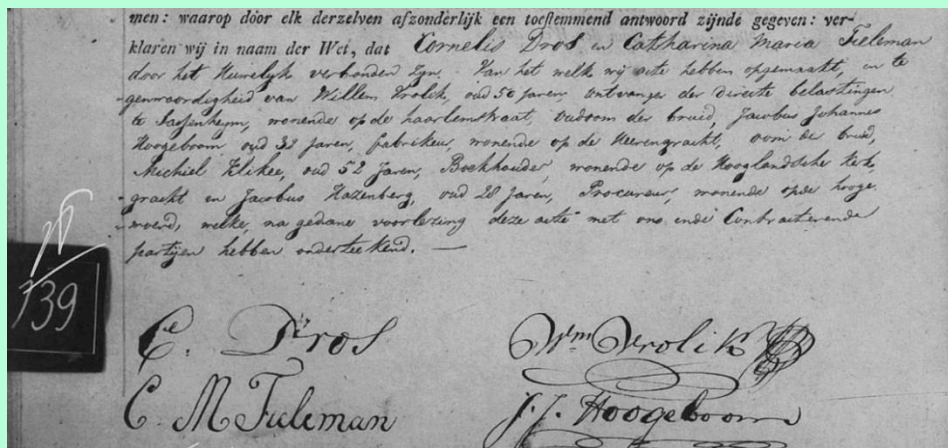 men: waarop door elk derzelven afzonderlijk een toestemmend antwoord zijnde gegeven: ver-
klaren wij in naam der Wet, dat Cornelis Dros en Catharina Maria Tieleman
door het Huwelyk verbonden Zyn. Van het welk wij acte hebben opgemaakt, in te
genwoordigheid van Willem Vrolik, oud 50 Jaren, ontvanger der directe belastingen
te Sassenheym, wonende op de haarlemstraat, oudoom der bruid, Jacobus Johannes
Hoogeboom oud 32 Jaren, fabrikeur, wonende op de Heerengracht, oom der bruid,
Michiel Flikee, oud 52 Jaren, Boekhouder, wonende op de Hooglandsche kerk
gracht en Jacobus Hazenberg, oud 28 Jaren, Procureur, wonende op de hooge
woerd, welke, na gedane voorlezing deze acte met ons en de Contracteerende
partijen hebben onderteekend. —
139
C. Dros
Wm Vrolik
C. M Tieleman
J. J. Hoogeboom